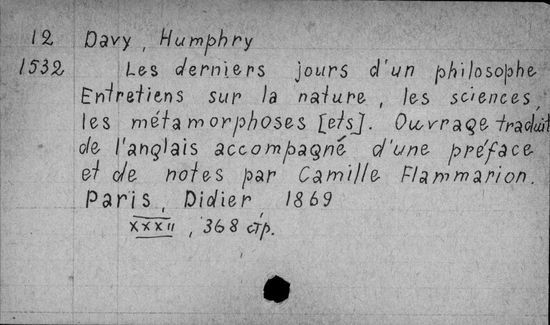 12 Davy, Humphry
1532 Les derniers jours d'un philosophe
Entretiens sur la nature, les sciences,
les métamorphoses [ets]. Ouvrage traduit
de l'anglais accompagné d'une préface
et de notes par Camille Flammarion.
Paris, Didier, 1869
XXXII, 368 стр.